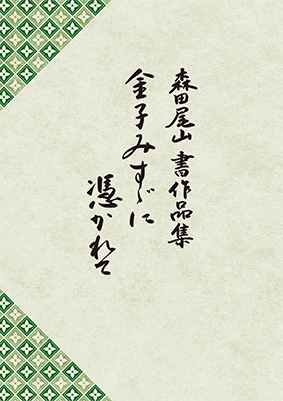 森田尾山 書作品集
金子みすゞに
憑かれて